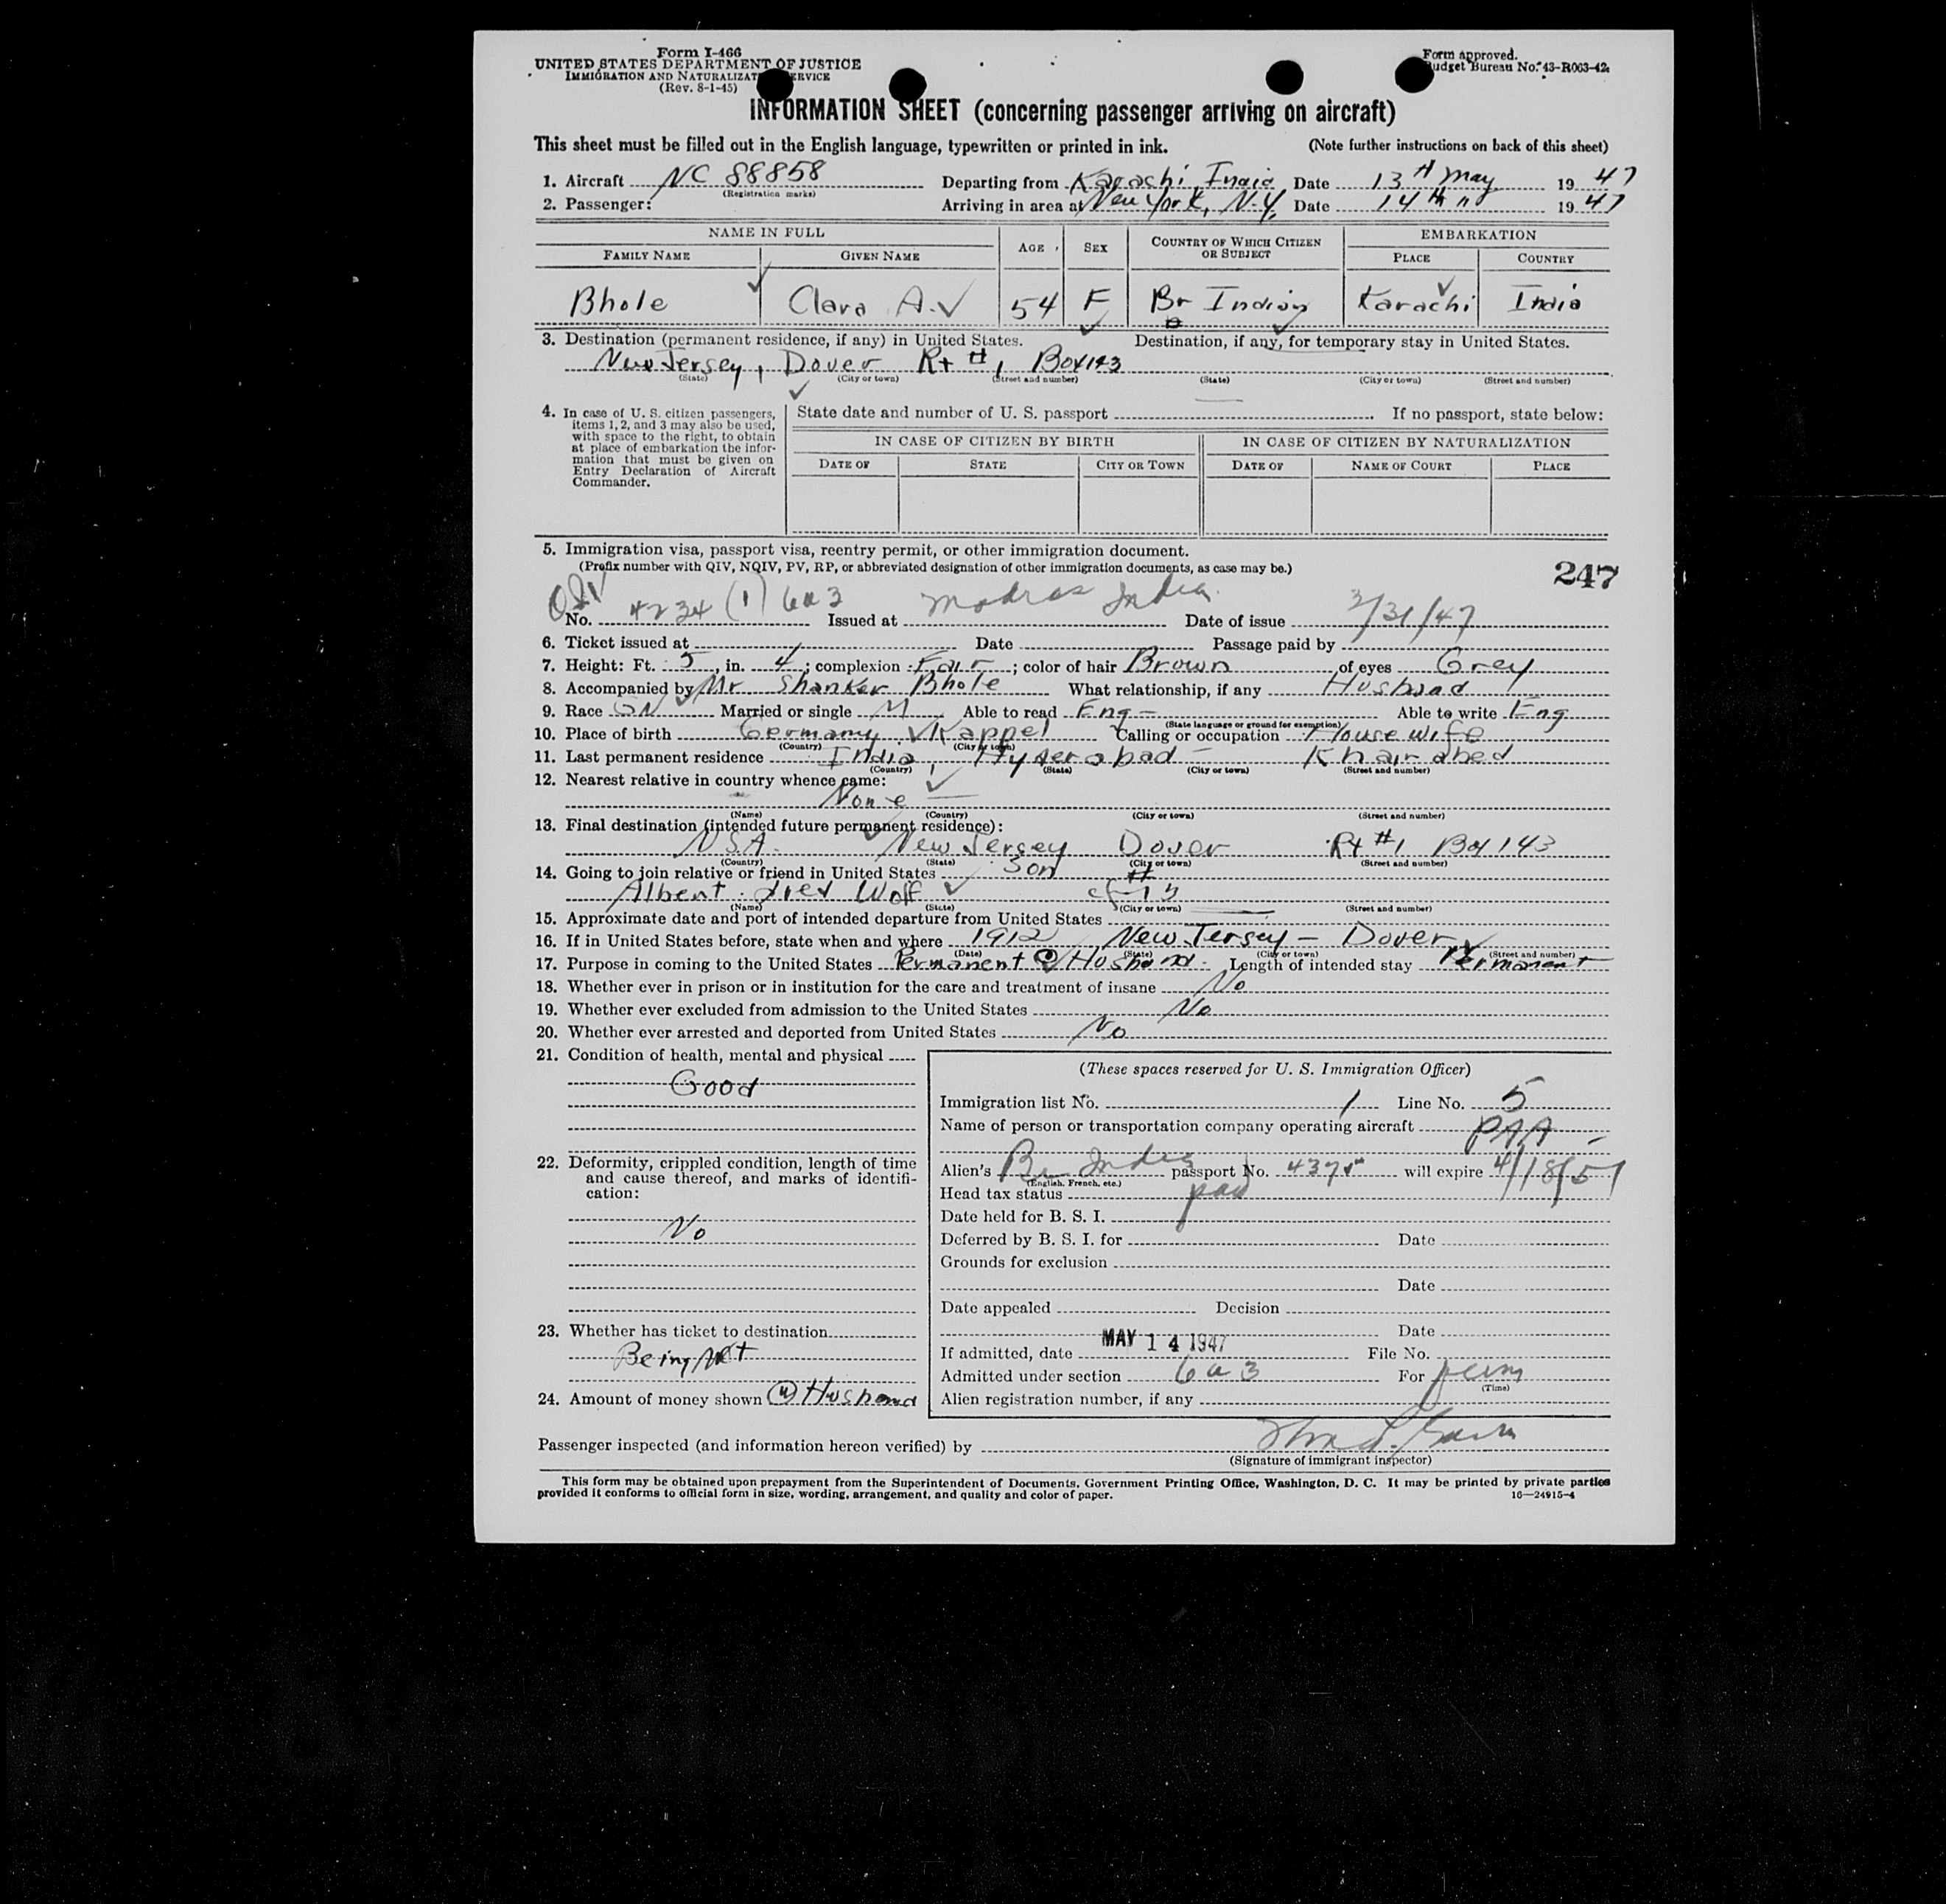 Form I-466
UNITED STATES DEPARTMENT OF JUSTICE
IMMIGRATION AND NATURALIZATION SERVICE
(Rev. 8-1-45)
Form approved.
Budget Bureau No. 43-R063-42.
INFORMATION SHEET (concerning passenger arriving on aircraft)
This sheet must be filled out in the English language, typewritten or printed in ink. (Note further instructions on back of this sheet)
1. Aircraft NC 88858 Departing from Karachi, India Date 13th May 1947
(Registration marks)
2. Passenger: Arriving in area at New York, N.Y. Date 14th " 1947
NAME IN FULL AGE SEX COUNTRY OF WHICH CITIZEN OR SUBJECT EMBARKATION
FAMILY NAME GIVEN NAME PLACE COUNTRY
Bhole Clara A. 54 F Br Indian Karachi India
3. Destination (permanent residence, if any) in United States. Destination, if any, for temporary stay in United States.
New Jersey, Dover Rt #1 Box 143
(State) (City or town) (Street and number) (State) (City or town) (Street and number)
4. In case of U. S. citizen passengers, items 1, 2, and 3 may also be used, with space to the right, to obtain at place of embarkation the information that must be given on Entry Declaration of Aircraft Commander.
State date and number of U. S. passport If no passport, state below:
IN CASE OF CITIZEN BY BIRTH IN CASE OF CITIZEN BY NATURALIZATION
DATE OF STATE CITY OR TOWN DATE OF NAME OF COURT PLACE
5. Immigration visa, passport visa, reentry permit, or other immigration document.
(Prefix number with QIV, NQIV, PV, RP, or abbreviated designation of other immigration documents, as case may be.)
247
QIV
No. 4234 (1) 6a3 Issued at Madras India Date of issue 3/31/47
6. Ticket issued at Date Passage paid by
7. Height: Ft. 5, in. 4; complexion Fair; color of hair Brown of eyes Grey
8. Accompanied by Mr Shanker Bhole What relationship, if any Husband
9. Race Married or single M Able to read Eng - Able to write Eng
(State language or ground for exemption)
10. Place of birth Germany Kappel Calling or occupation House wife
(Country) (City or town)
11. Last permanent residence India, Hyderabad - Khairabed
(Country) (State) (City or town) (Street and number)
12. Nearest relative in country whence came:
None
(Name) (Country) (City or town) (Street and number)
13. Final destination (intended future permanent residence):
U.S.A. New Jersey Dover Rt #1 Box 143
(Country) (State) (City or town) (Street and number)
14. Going to join relative or friend in United States Son
Albert Wolf
(Name) (State) (City or town) (Street and number)
15. Approximate date and port of intended departure from United States
16. If in United States before, state when and where 1912, New Jersey - Dover
(Date) (State) (City or town) (Street and number)
17. Purpose in coming to the United States Permanent Husband. Length of intended stay Permanent
18. Whether ever in prison or in institution for the care and treatment of insane No
19. Whether ever excluded from admission to the United States No
20. Whether ever arrested and deported from United States No
21. Condition of health, mental and physical
Good
22. Deformity, crippled condition, length of time and cause thereof, and marks of identification:
No
23. Whether has ticket to destination
Being Met
24. Amount of money shown (w) Husband
(These spaces reserved for U. S. Immigration Officer)
Immigration list No. 1 Line No. 5
Name of person or transportation company operating aircraft PAA -
Alien's Br India passport No. 4375 will expire 4/18/51
(English, French, etc.)
Head tax status paid
Date held for B. S. I.
Deferred by B. S. I. for Date
Grounds for exclusion
Date
Date appealed Decision
Date
If admitted, date MAY 14 1947 File No.
Admitted under section 6a3 For perm
(Time)
Alien registration number, if any
Passenger inspected (and information hereon verified) by
(Signature of immigrant inspector)
This form may be obtained upon prepayment from the Superintendent of Documents, Government Printing Office, Washington, D. C. It may be printed by private parties
provided it conforms to official form in size, wording, arrangement, and quality and color of paper. 16—24915-4